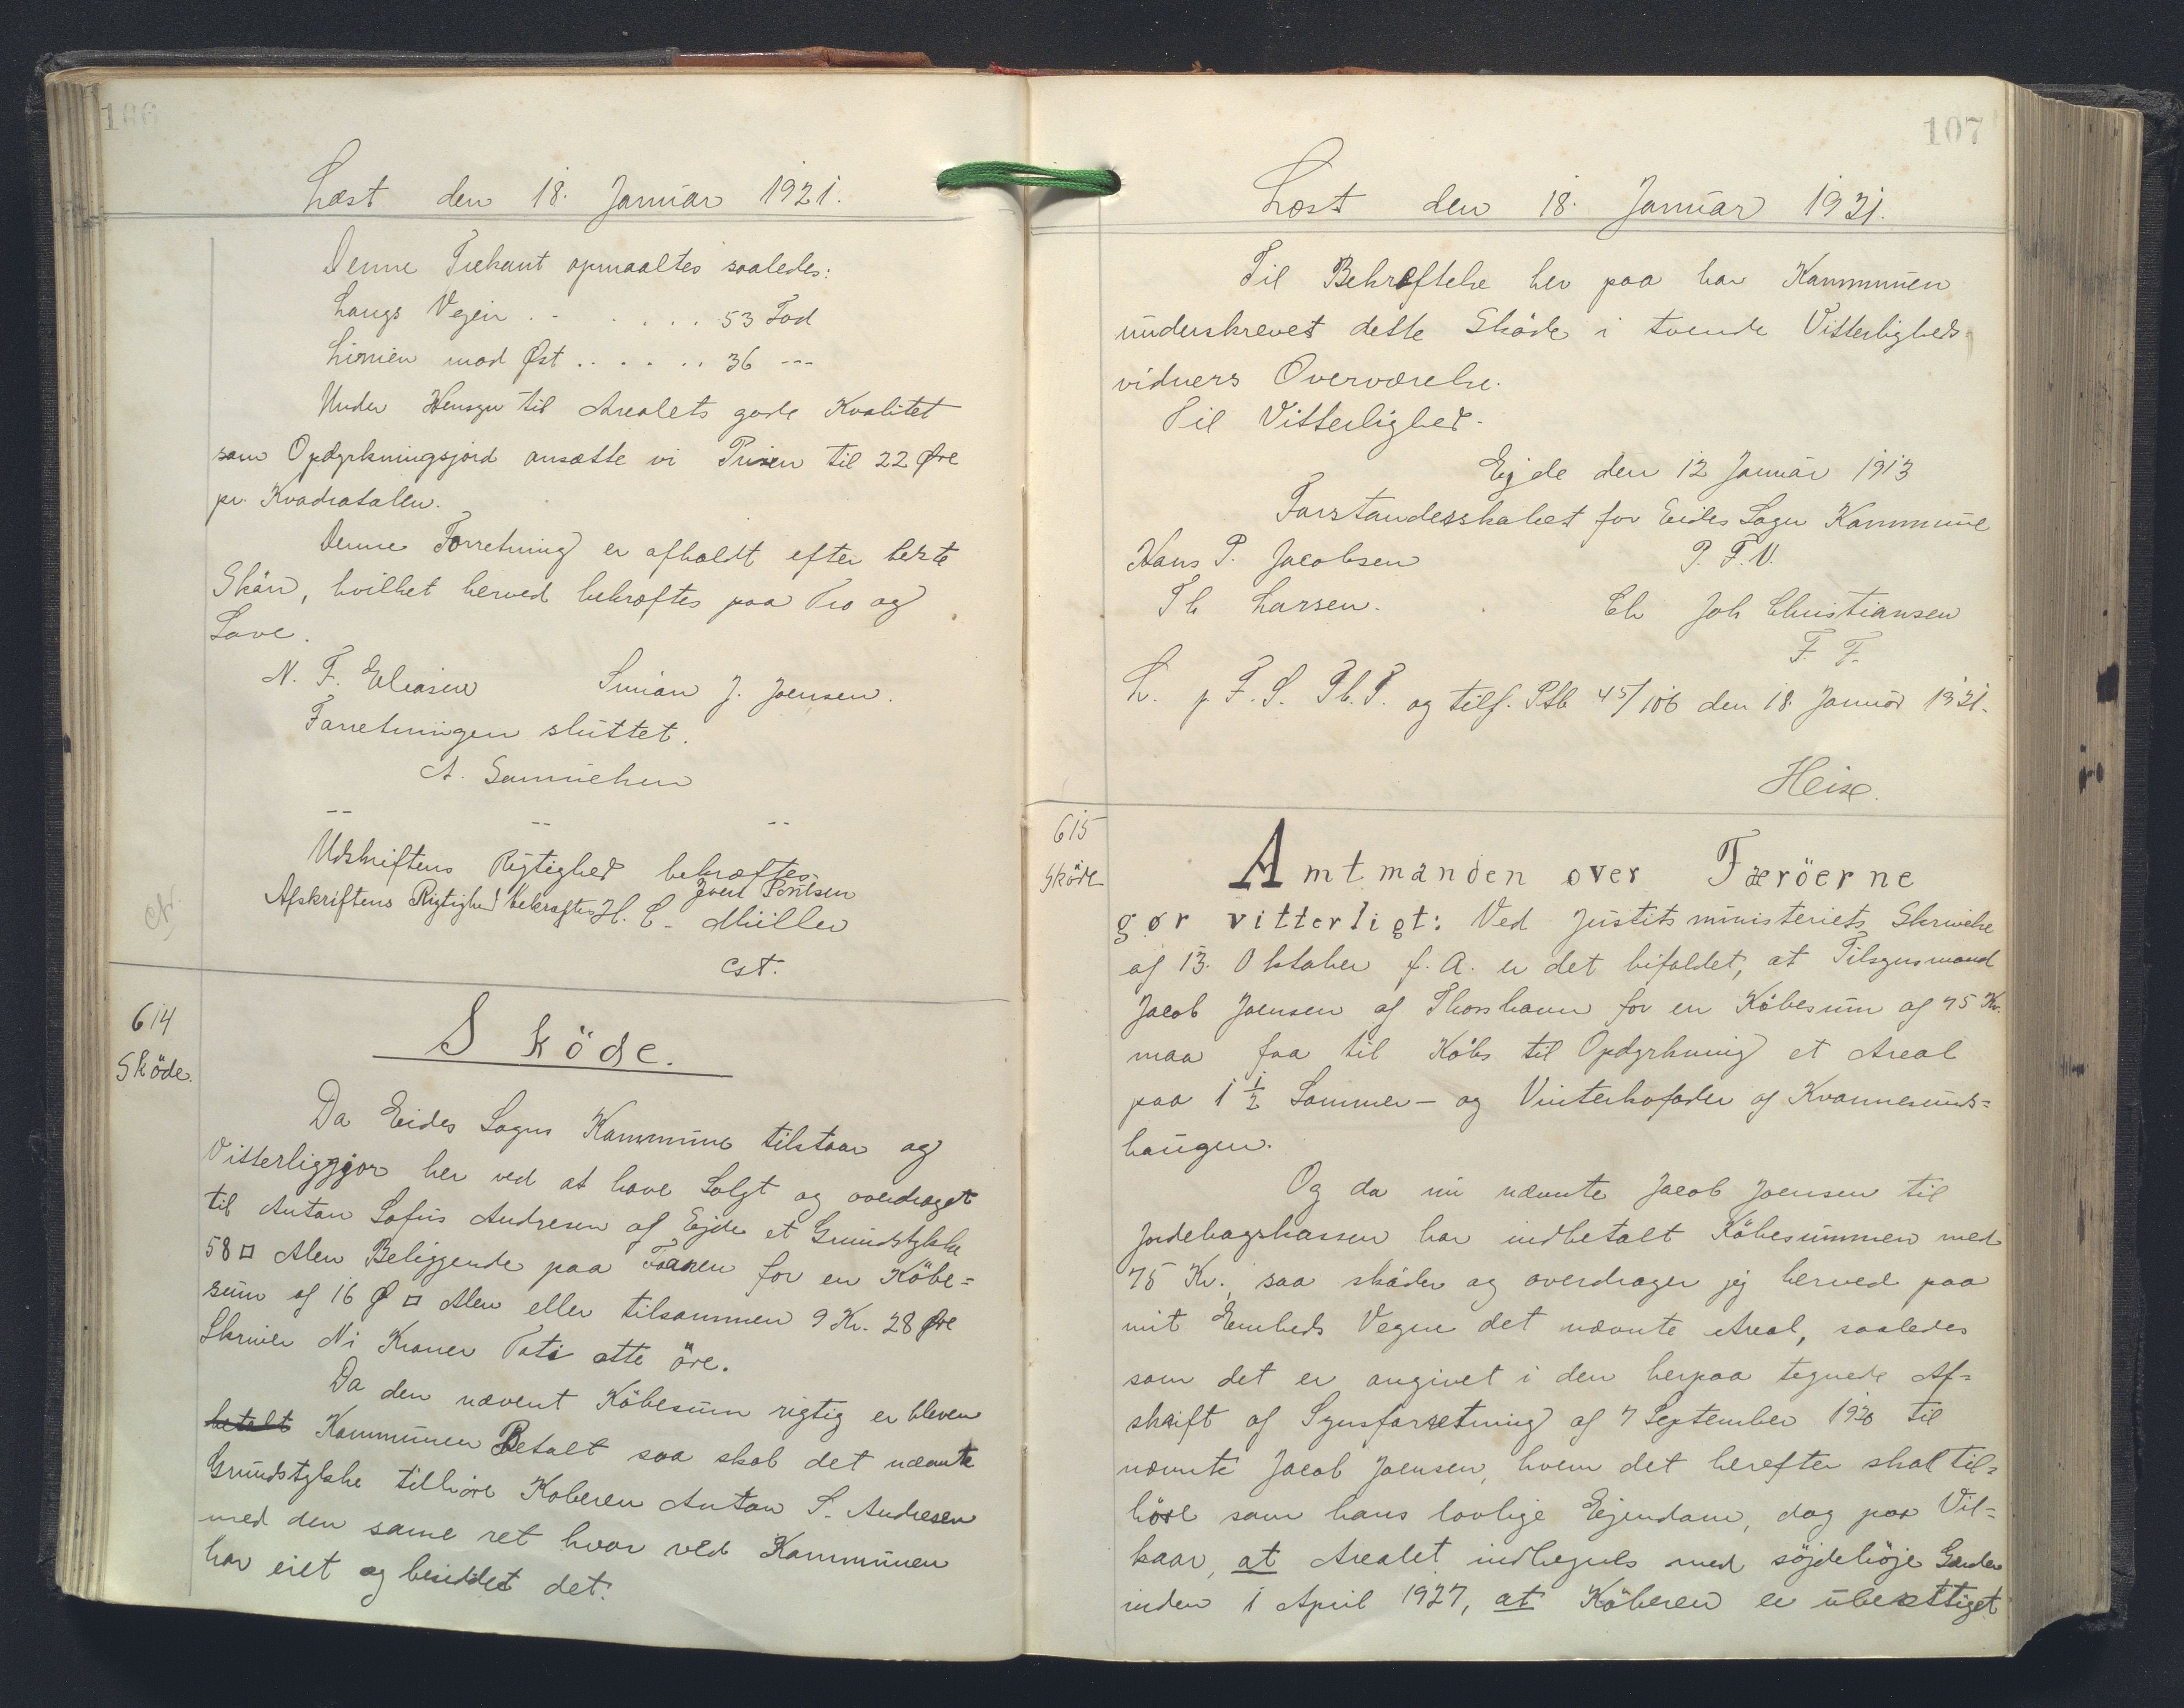 106
Læst den 18. Januar 1921.
Denne Trekant opmaaltes saaledes:
Langs Vejen . . . . . . 53 Fod
Linien mod Øst . . . . . . 36 ---
Under Hensyn til Arealets gode Kvalitet
som Opdyrkningsjord ansætte vi Prisen til 22 Øre
pr. Kvadratalen.
Denne Forretning er afholdt efter bedste
Skön, hvilket herved bekræftes paa Tro og
Love.
N. F. Eliasen Simian J. Joensen.
Forretningen sluttet.
A. Samuelsen
-- -- --
Udskriftens Rigtighed bekræftes.
Joen Poulsen
Afskriftens Rigtighed bekræftes H. C. Müller
cst.
614
Sköde.
Sköde.
Da Eides Sogns Kommune tilstaar og
Vitterliggjør her ved at have Solgt og overdraget
til Anton Sofus Andresen af Ejde et Grundstykke
58 □ Alen Beliggende paa for en Köbe=
sum af 16 Ø □ Alen eller tilsammen 9 Kr. 28 Øre
Skriver Ni Kroner Toti otte öre.
Da den nævent Köbesum rigtig er bleven
betalt Kommunen Betalt saa skal det nævnte
Grundstykke tilhöre Koberen Anton S. Andresen
med den same ret hvor ved Kommunen
har eiet og besiddet det.
107
Læst den 18. Januar 1921.
Til Bekræftelse her paa har Kommunen
underskrevet dette Sköde i tvende Vitterligheds
vidners Overværelse.
Til Vitterlighed.
Ejde den 12 Januar 1913
Forstanderskabet for Eides Sogn Kommune
Hans P. Jacobsen P. F. V.
Th Larsen. Ch Joh Christiansen
F. F.
L. p F. S. Th. T. og tilf. Ptb 45/106 den 18. Januar 1921.
Heise.
615
Sköde
Amtmanden over Færöerne
gør vitterligt: Ved Justitsministeriets Skrivelse
af 13. Oktober f. A. er det bifaldet, at Tilsynsmand
Jacob Joensen af Thorshavn for en Köbesum af 75 Kr.
maa faa til Köbs til Opdyrkning et Areal
paa 1 1/2 Sommer- og Vinterkofoder af Kvannesunds=
haugen.
Og da nu nævnte Jacob Joensen til
Jordebogskassen har indbetalt Köbesummen med
75 Kr., saa sköder og overdrager jeg herved paa
mit Embeds Vegne det nævnte Areal, saaledes
som det er angivet i den herpaa tegnede Af=
skrift af Synsforretning af 7 September 1920 til
nævnte Jacob Joensen, hvem det herefter skal til=
höre som hans lovlige Ejendom, dog paa Vil=
kaar, at Arealet indhegnes med söjdehöje Gærder
inden 1 April 1927, at Köberen er uberettiget